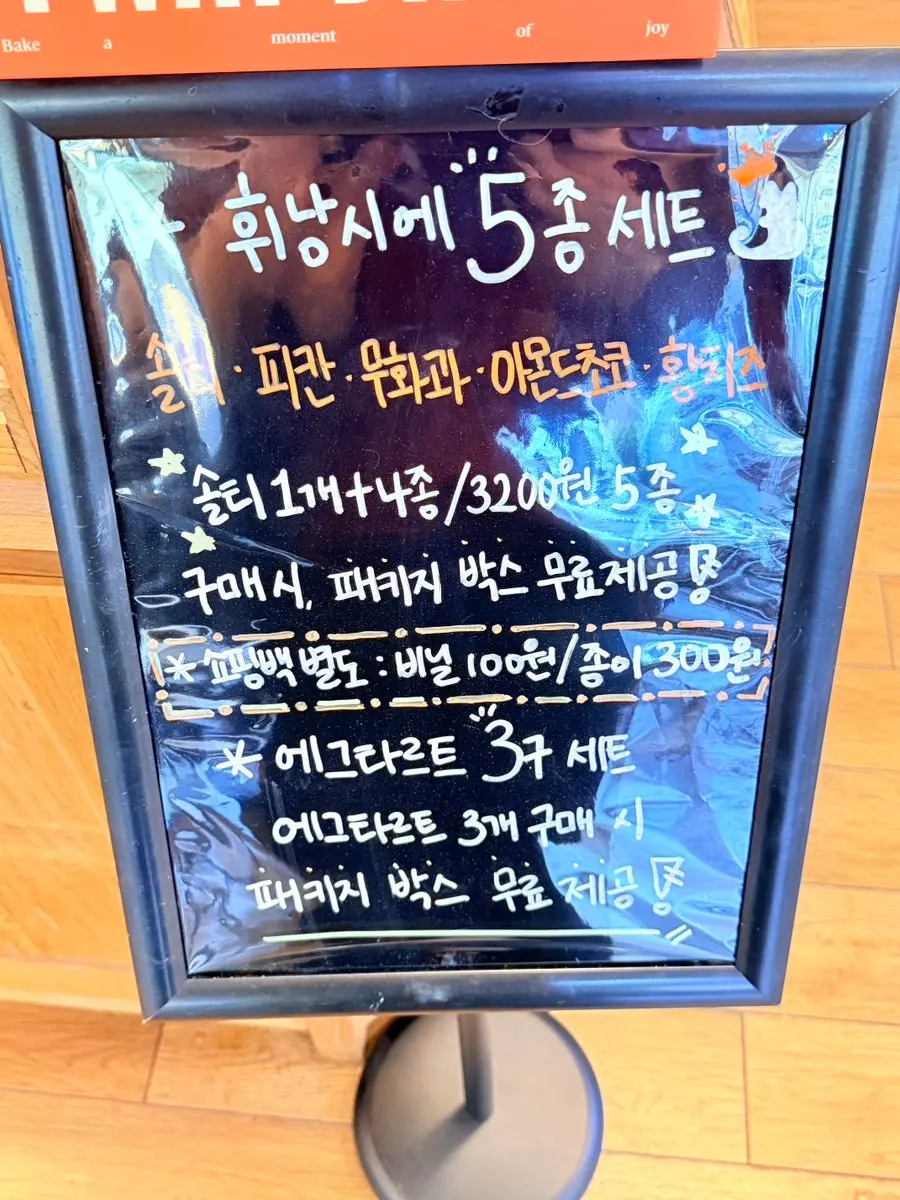 Bake a moment of joy
휘낭시에 5종 세트
솔티 · 피칸 · 무화과 · 아몬드초코 · 황치즈
솔티 1개+4종/3200원 5종
구매 시, 패키지 박스 무료 제공!
* 쇼핑백 별도 : 비닐 100원/종이 300원
* 에그타르트 3구 세트
에그타르트 3개 구매 시
패키지 박스 무료 제공!